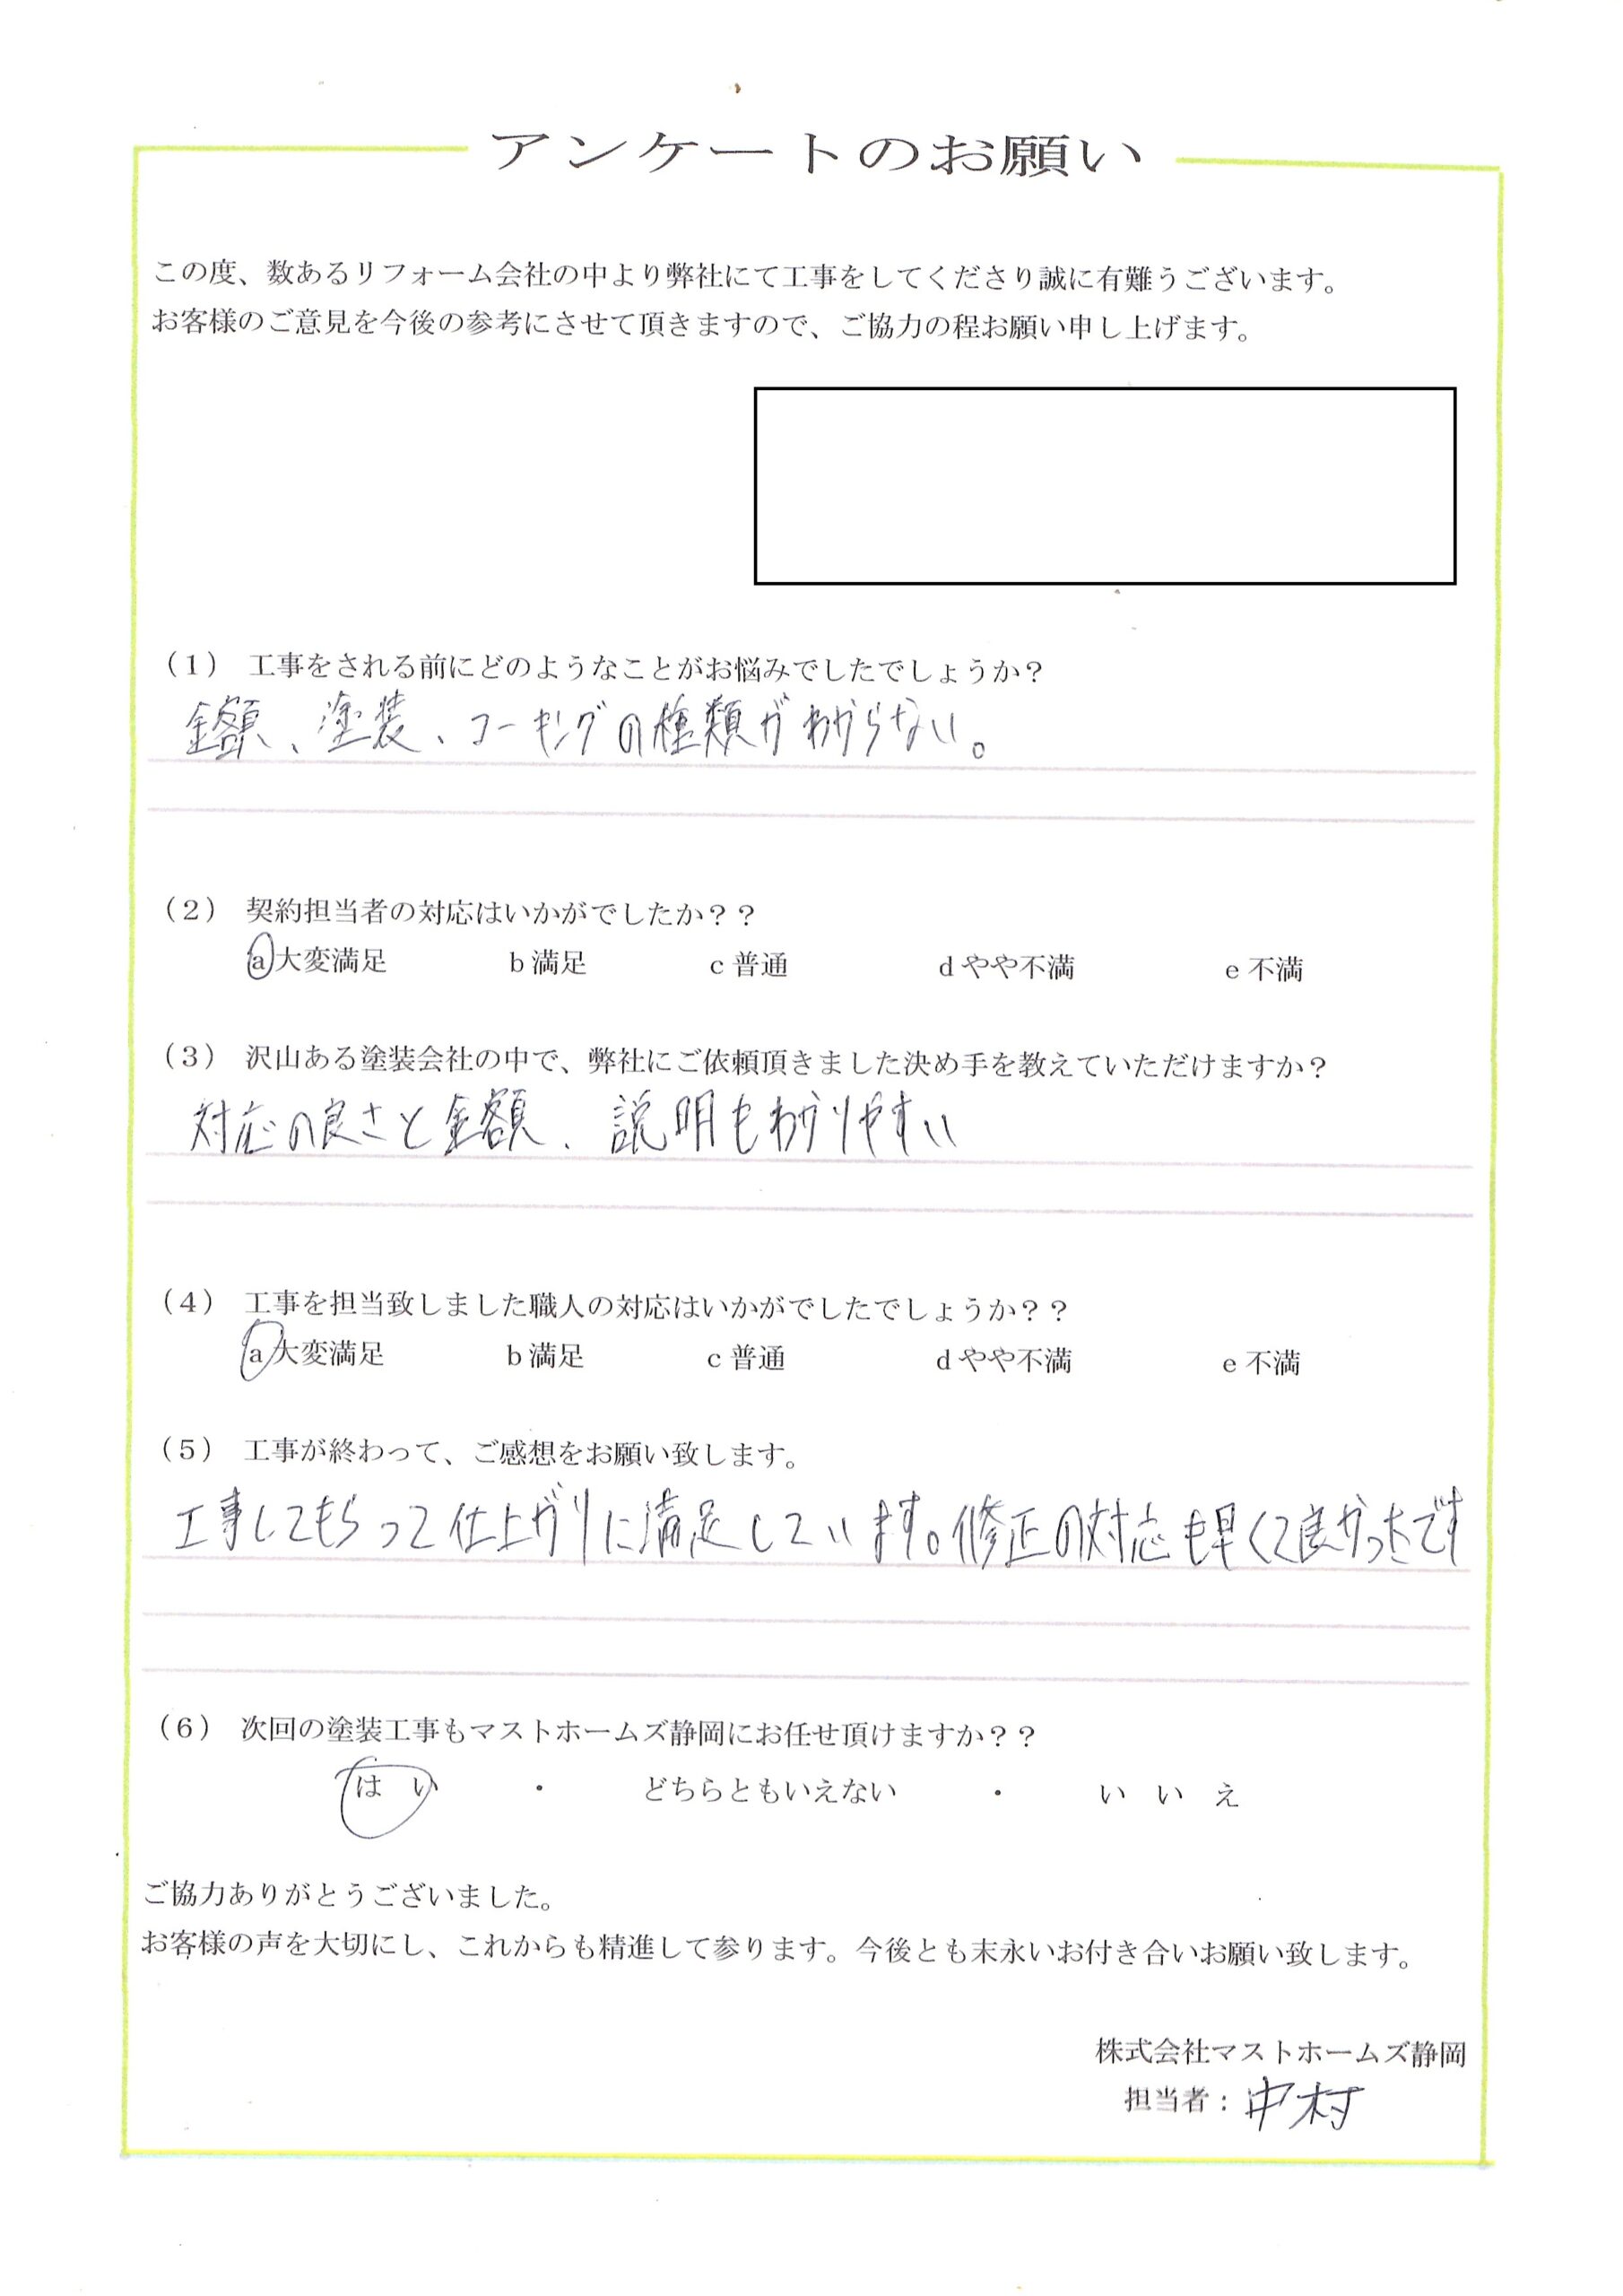 アンケートのお願い
この度、数あるリフォーム会社の中より弊社にて工事をしてくださり誠に有難うございます。
お客様のご意見を今後の参考にさせて頂きますので、ご協力の程お願い申し上げます。
（1） 工事をされる前にどのようなことがお悩みでしたでしょうか？
金額、塗装、コーキングの種類がわからない。
（2） 契約担当者の対応はいかがでしたか？？
a 大変満足 b 満足 c 普通 d やや不満 e 不満
（3） 沢山ある塗装会社の中で、弊社にご依頼頂きました決め手を教えていただけますか？
対応の良さと金額、説明もわかりやすい
（4） 工事を担当致しました職人の対応はいかがでしたでしょうか？？
a 大変満足 b 満足 c 普通 d やや不満 e 不満
（5） 工事が終わって、ご感想をお願い致します。
工事してもらって仕上がりに満足しています。修正の対応も早くて良かったです
（6） 次回の塗装工事もマストホームズ静岡にお任せ頂けますか？？
は い ・ どちらともいえない ・ い い え
ご協力ありがとうございました。
お客様の声を大切にし、これからも精進して参ります。今後とも末永いお付き合いお願い致します。
株式会社マストホームズ静岡
担当者：中村